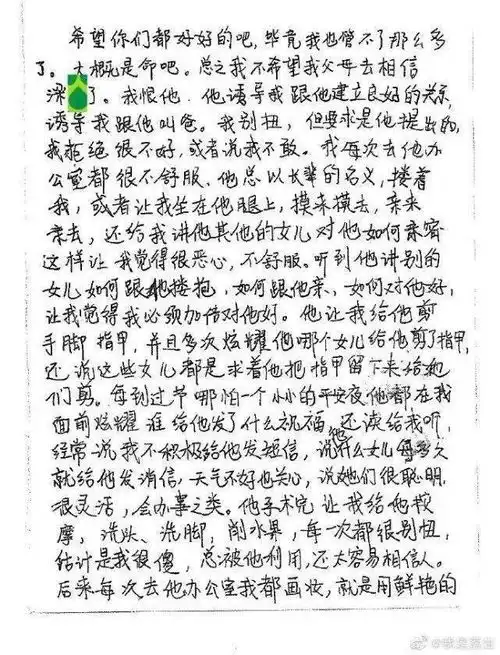 希望你们都好好的吧,毕竟我也管不了那么多
了。大概是命吧。总之我不希望我父母去相信
了。我恨他、他诱导我跟他建立良好的关系,
诱导我跟他叫爸。我别扭,但要求是他提出的,
我拒绝很不好,或者说我不敢。我每次去他办
公室都很不舒服、他总以长辈的名义,搂着
我,或者让我坐在他腿上,摸来摸去,亲来
亲去,还给我讲他其他的女儿对他如何亲密
这样让我觉得很恶心,不舒服。听到他讲别的
女儿如何跟他搂抱,如何跟他亲、如何对他好,
让我觉得我必须加倍对他好。他让我给他剪
手脚指甲,并且多次炫耀他哪个女儿给他剪了指甲,
还说这些女儿都是求着他把指甲留下来给她
们剪。每到过节哪怕一个小小的平安夜他都在我
面前炫耀谁给他发了什么祝福,还读给我听,
经常说我不积极给他发短信,说他什么女儿每多久
就给他发消信,天气不好也关心,说她们很聪明,
很灵活,会办事之类。他手术完让我给他按
摩,洗头、洗脚,削水果,每一次都很别扭,
估计是我很傻,总被他利用,还太容易相信人。
后来每次去他办公室我都画妆,就是用鲜艳的